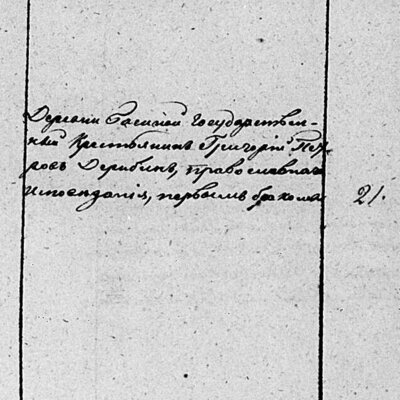 Деревни Государствен-
ный Крестьянинъ Григорій Пет-
ровъ Дерябинъ, православнаго
исповѣданія, первымъ бракомъ 21.